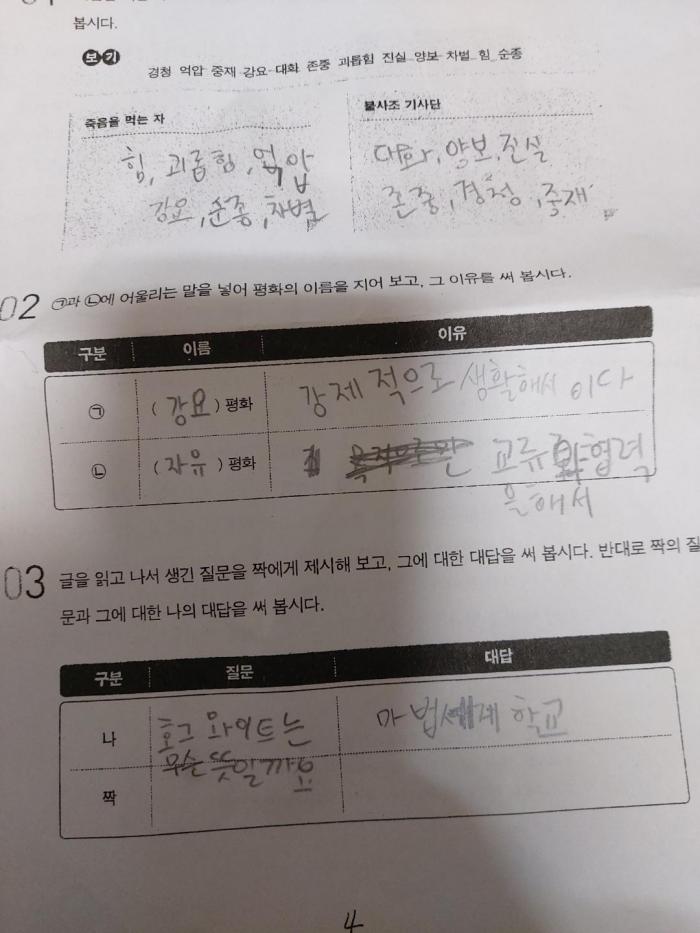 봅시다.
보기
경청 억압 중재 강요 대화 존중 괴롭힘 진실 양보 차별 힘 순종
죽음을 먹는 자
힘, 괴롭힘, 억압
강요, 순종, 차별
불사조 기사단
대화, 양보, 진실
존중, 경청, 중재
02 ㉠과 ㉡에 어울리는 말을 넣어 평화의 이름을 지어 보고, 그 이유를 써 봅시다.
구분 이름 이유
㉠ (강요) 평화 강제적으로 생활해서 이다
㉡ (자유) 평화 교류와 협력
을해서
03 글을 읽고 나서 생긴 질문을 짝에게 제시해 보고, 그에 대한 대답을 써 봅시다. 반대로 짝의 질
문과 그에 대한 나의 대답을 써 봅시다.
구분 질문 대답
나 호그와이트는 마법세계 학교
무슨 뜻일까요
짝
4